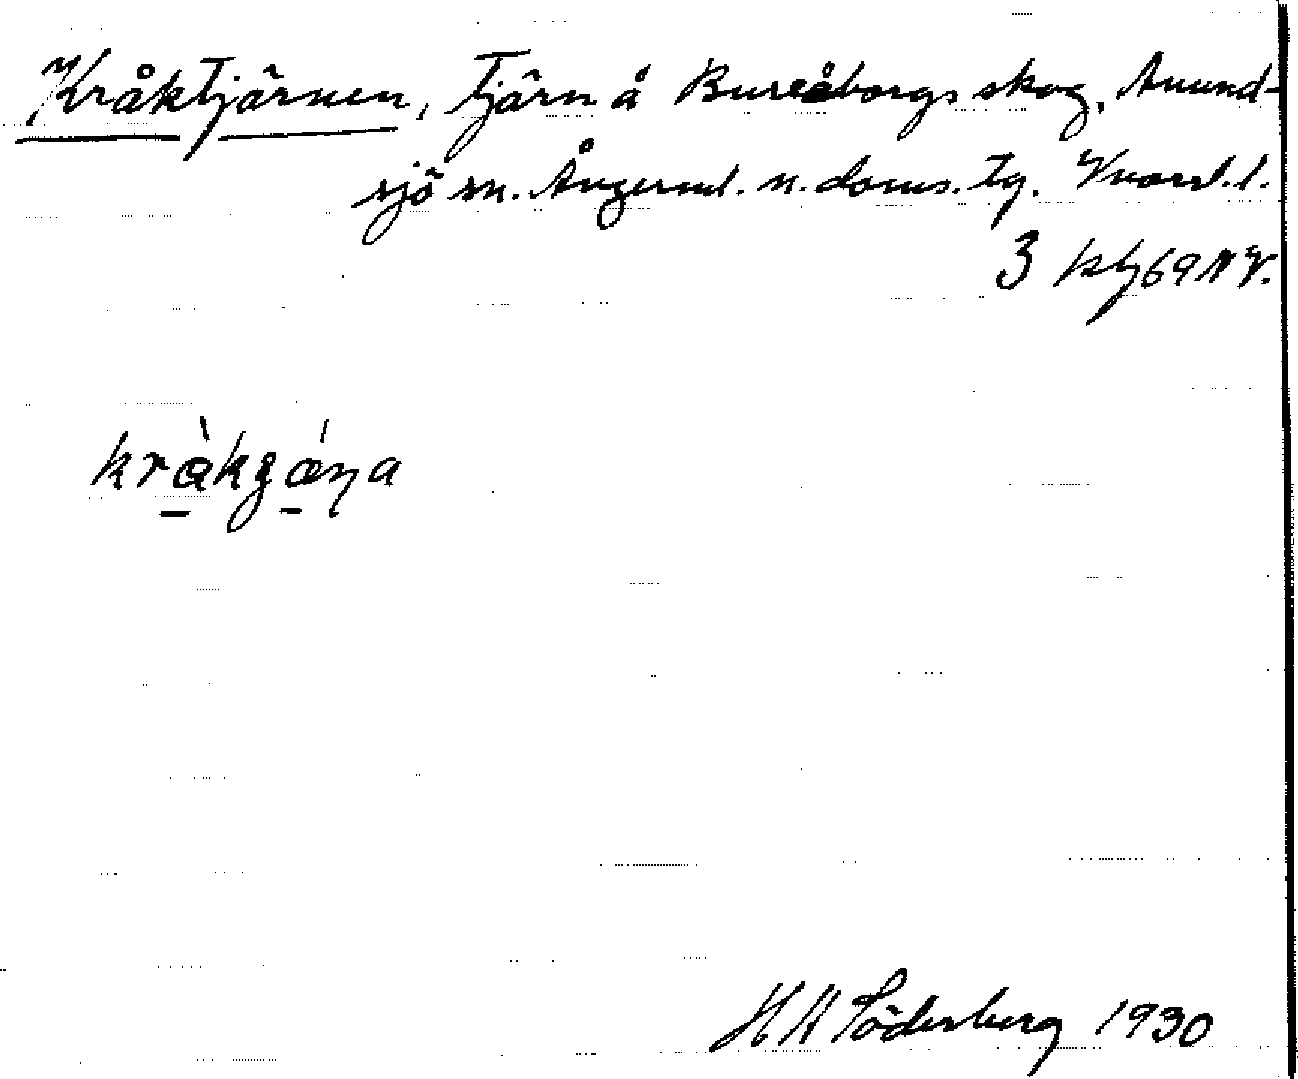 Kråktjärnen, tjärn å Bureåborgs skog, Anund-
sjö sn. Ångerml. n. doms. tg. Kvarsl. l.
3 kbl 69 NV.
kràkgǽna
H H Söderberg 1930